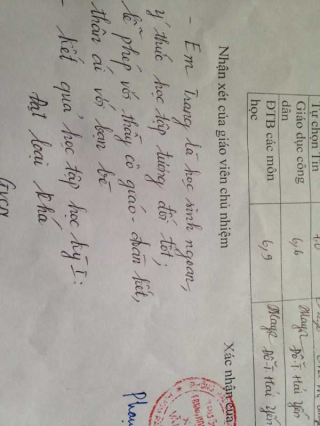 Tự chọn Tin
Giáo dục công
dân
6,6
Mays Đỗ T Hải Yến
ĐTB các môn
học
6,9
Mays Đỗ T Hải Yến
Nhận xét của giáo viên chủ nhiệm
Xác nhận của
- Em Trang là học sinh ngoan,
ý thức học tập tương đối tốt;
lễ phép với thầy cô giáo - đoàn kết,
thân ái với bạn bè
- kết quả học tập học kỳ I:
Đạt loại khá
GVCN